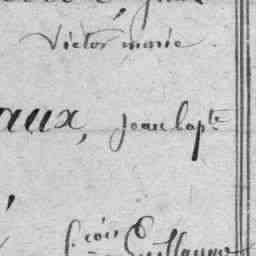 Victor marie
aux, jean bapte
fcois Guillaume